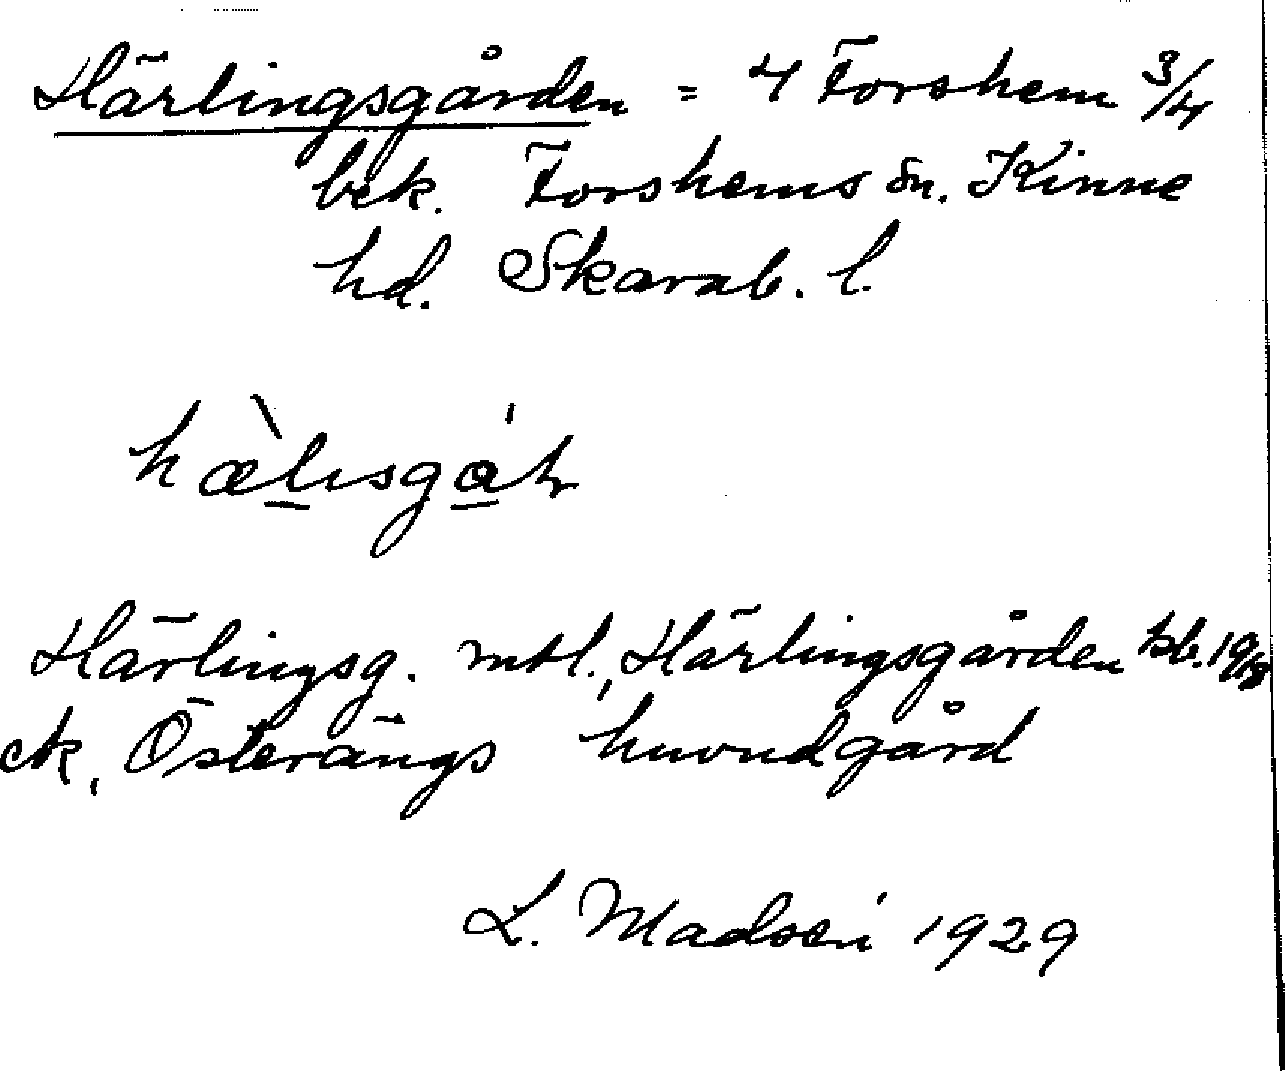 Härlingsgården = 4 Forshem 3/4
bek. Forshems sn. Kinne
hd. Skarab. l.
hælısgàh
Härlingsg. mtl., Härlingsgården kb. 19/18
ek, Österängs huvudgård
L. Madsén 1929